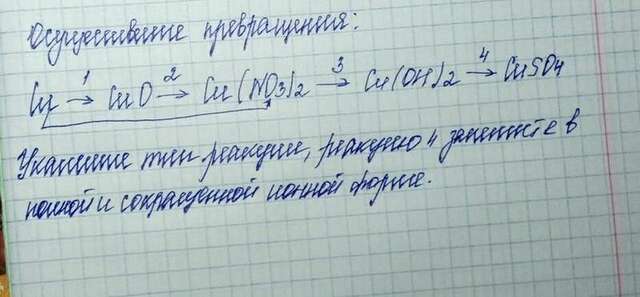 Осуществите превращения:
Cu 1→ CuO 2→ Cu(NO3)2 3→ Cu(OH)2 4→ CuSO4
Укажите тип реакции, реакцию 4 запишите в
полной и сокращенной ионной форме.